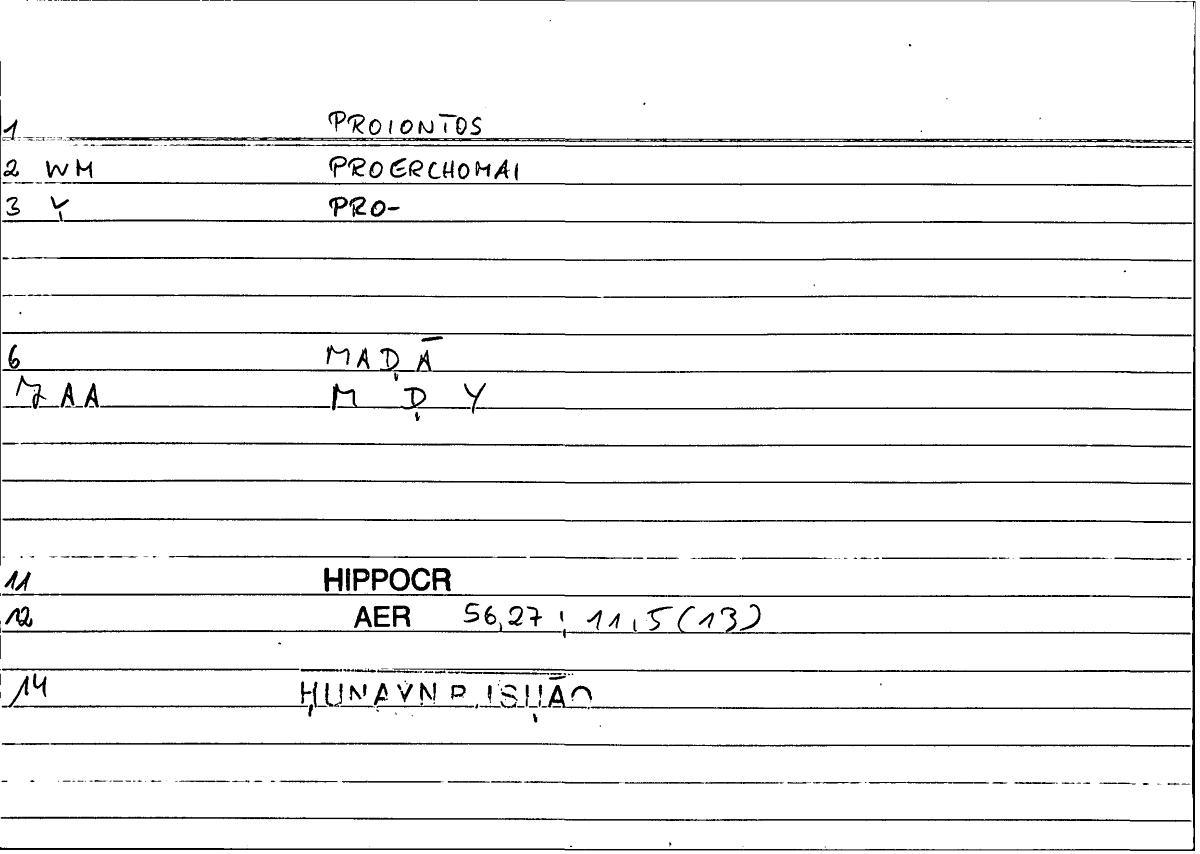 1 PROIONTOS
2 WM PROERCHOMAI
3 PRO-
6 MAḌĀ
AA M Ḍ Y
11 HIPPOCR
12 AER 56,27 ; 11,5 (13)
14